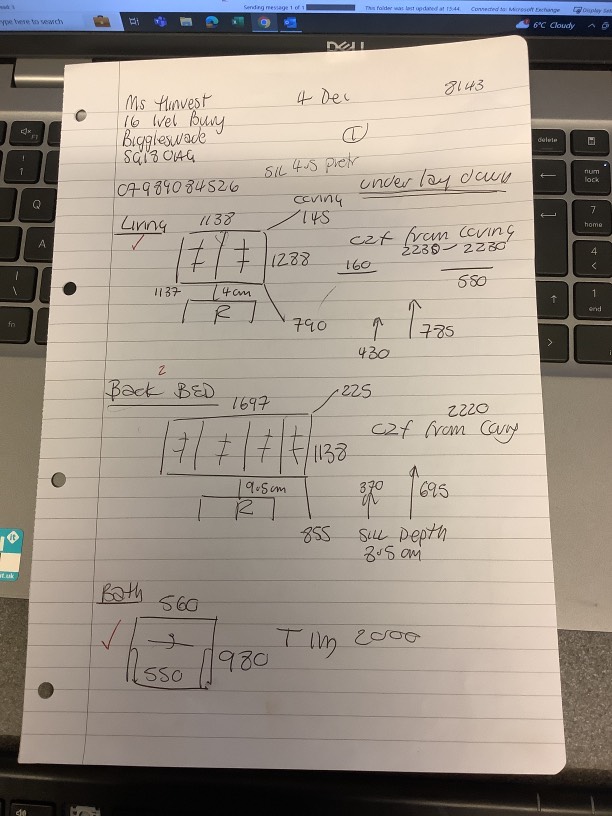 Sending message 1 of 1
This folder was last updated at 15:44.
Connected to: Microsoft Exchange
Display Set
Type here to search
6°C Cloudy
DELL
Ms Hinvest
4 Dec
8143
16 Ivel Bury
①
Biggleswade
SG18 0AG
SILL 4.5 pictr
07989084526
under lay down
Living
1138
coving
145
✓
1288
c2f from coving
2230 - 2230
160
550
1137
4cm
R
790
430
785
2
Back BED
1697
225
2220
c2f from coving
1138
9.5cm
R
370
695
855
SILL Depth
8.5 cm
Bath
560
✓
980
Tim 2000
550
delete
num
lock
7
home
4
1
end
Q
A
fn
it
it.uk